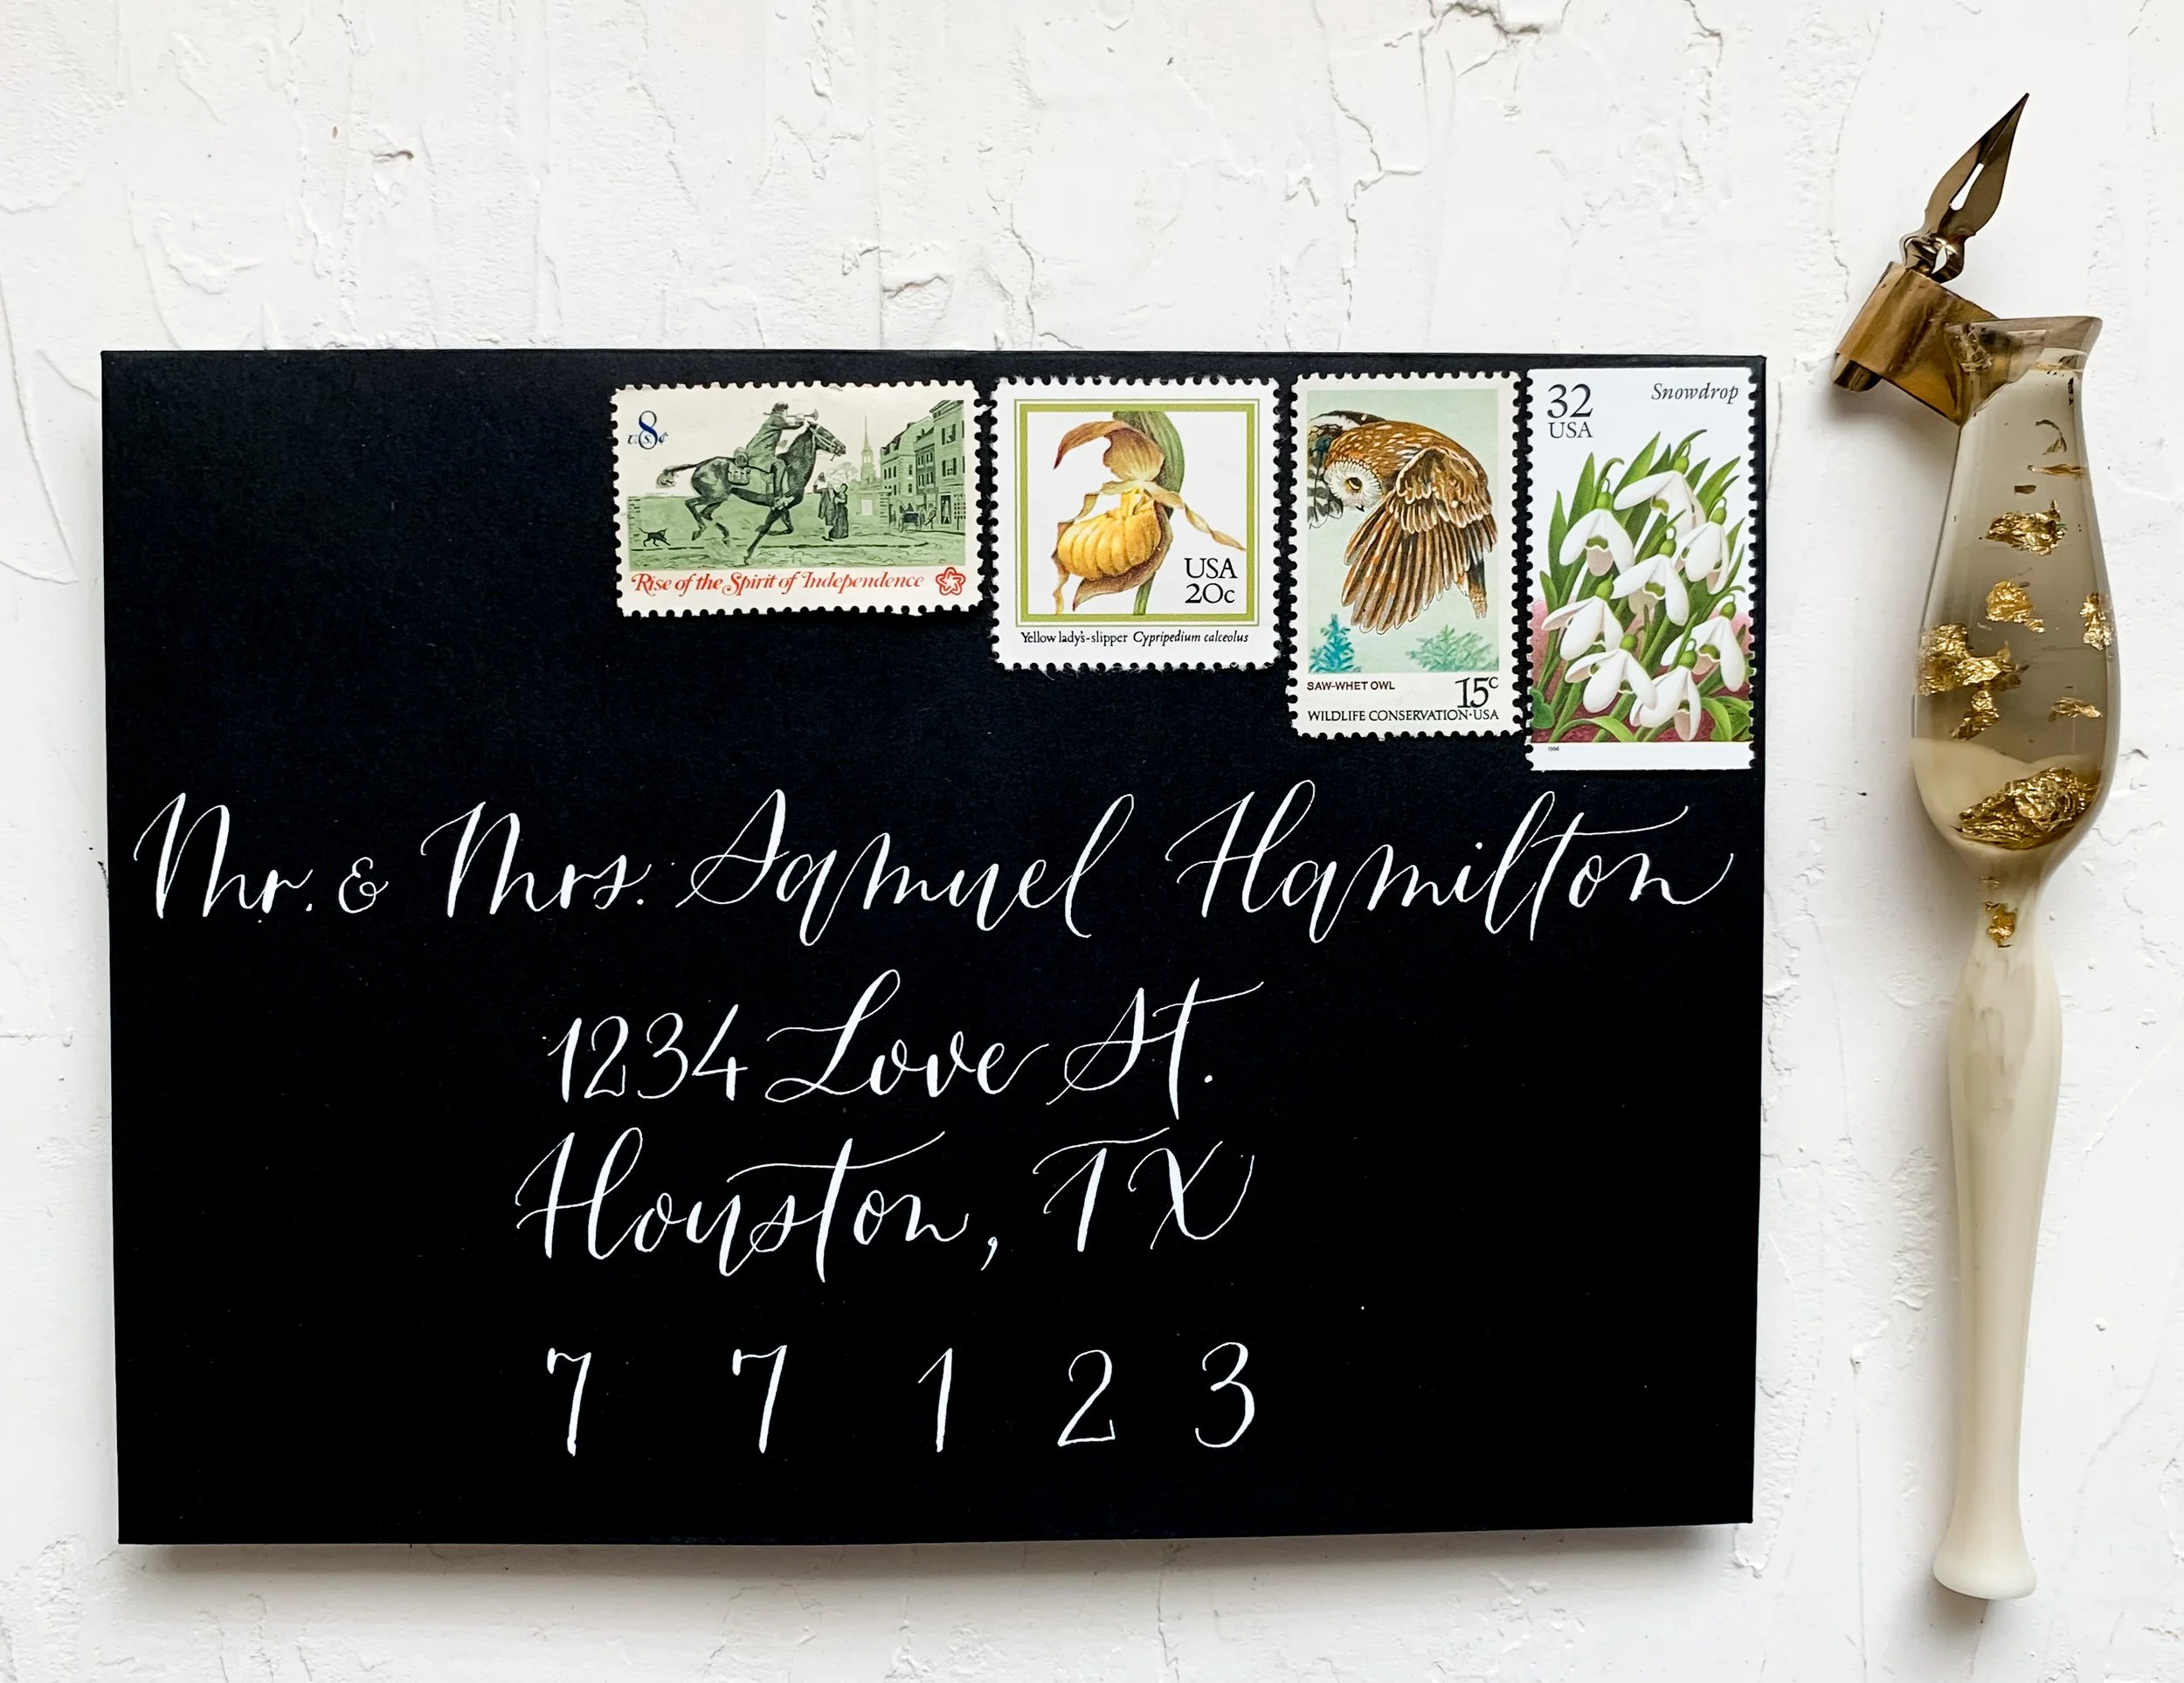 8
U.S. ¢
Rise of the Spirit of Independence
USA
20c
Yellow lady's-slipper Cypripedium calceolus
SAW-WHET OWL
15c
WILDLIFE CONSERVATION·USA
32
USA
Snowdrop
1996
Mr. & Mrs. Samuel Hamilton
1234 Love St.
Houston, TX
7 7 1 2 3